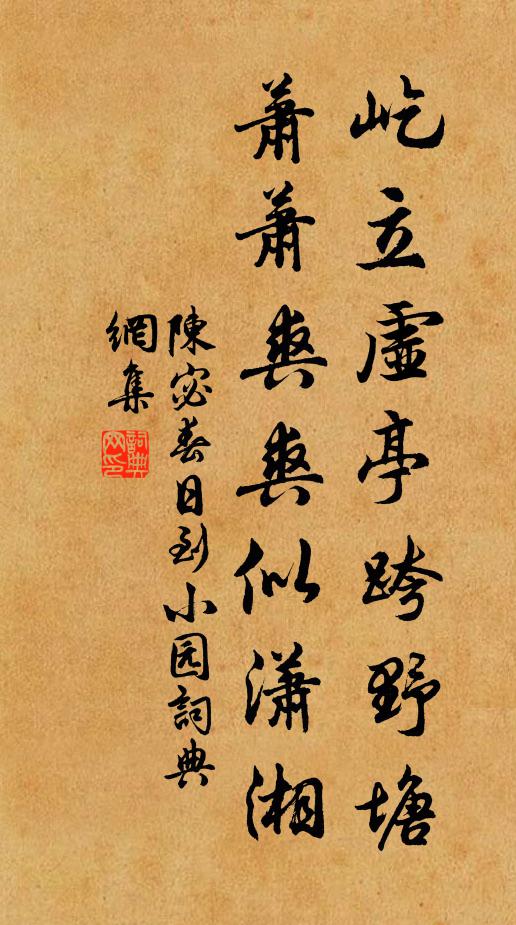 屹立虛亭跨野塘
蕭蕭爽爽似瀟湘
陳宓春日到小园詞典
網集
詞典網印